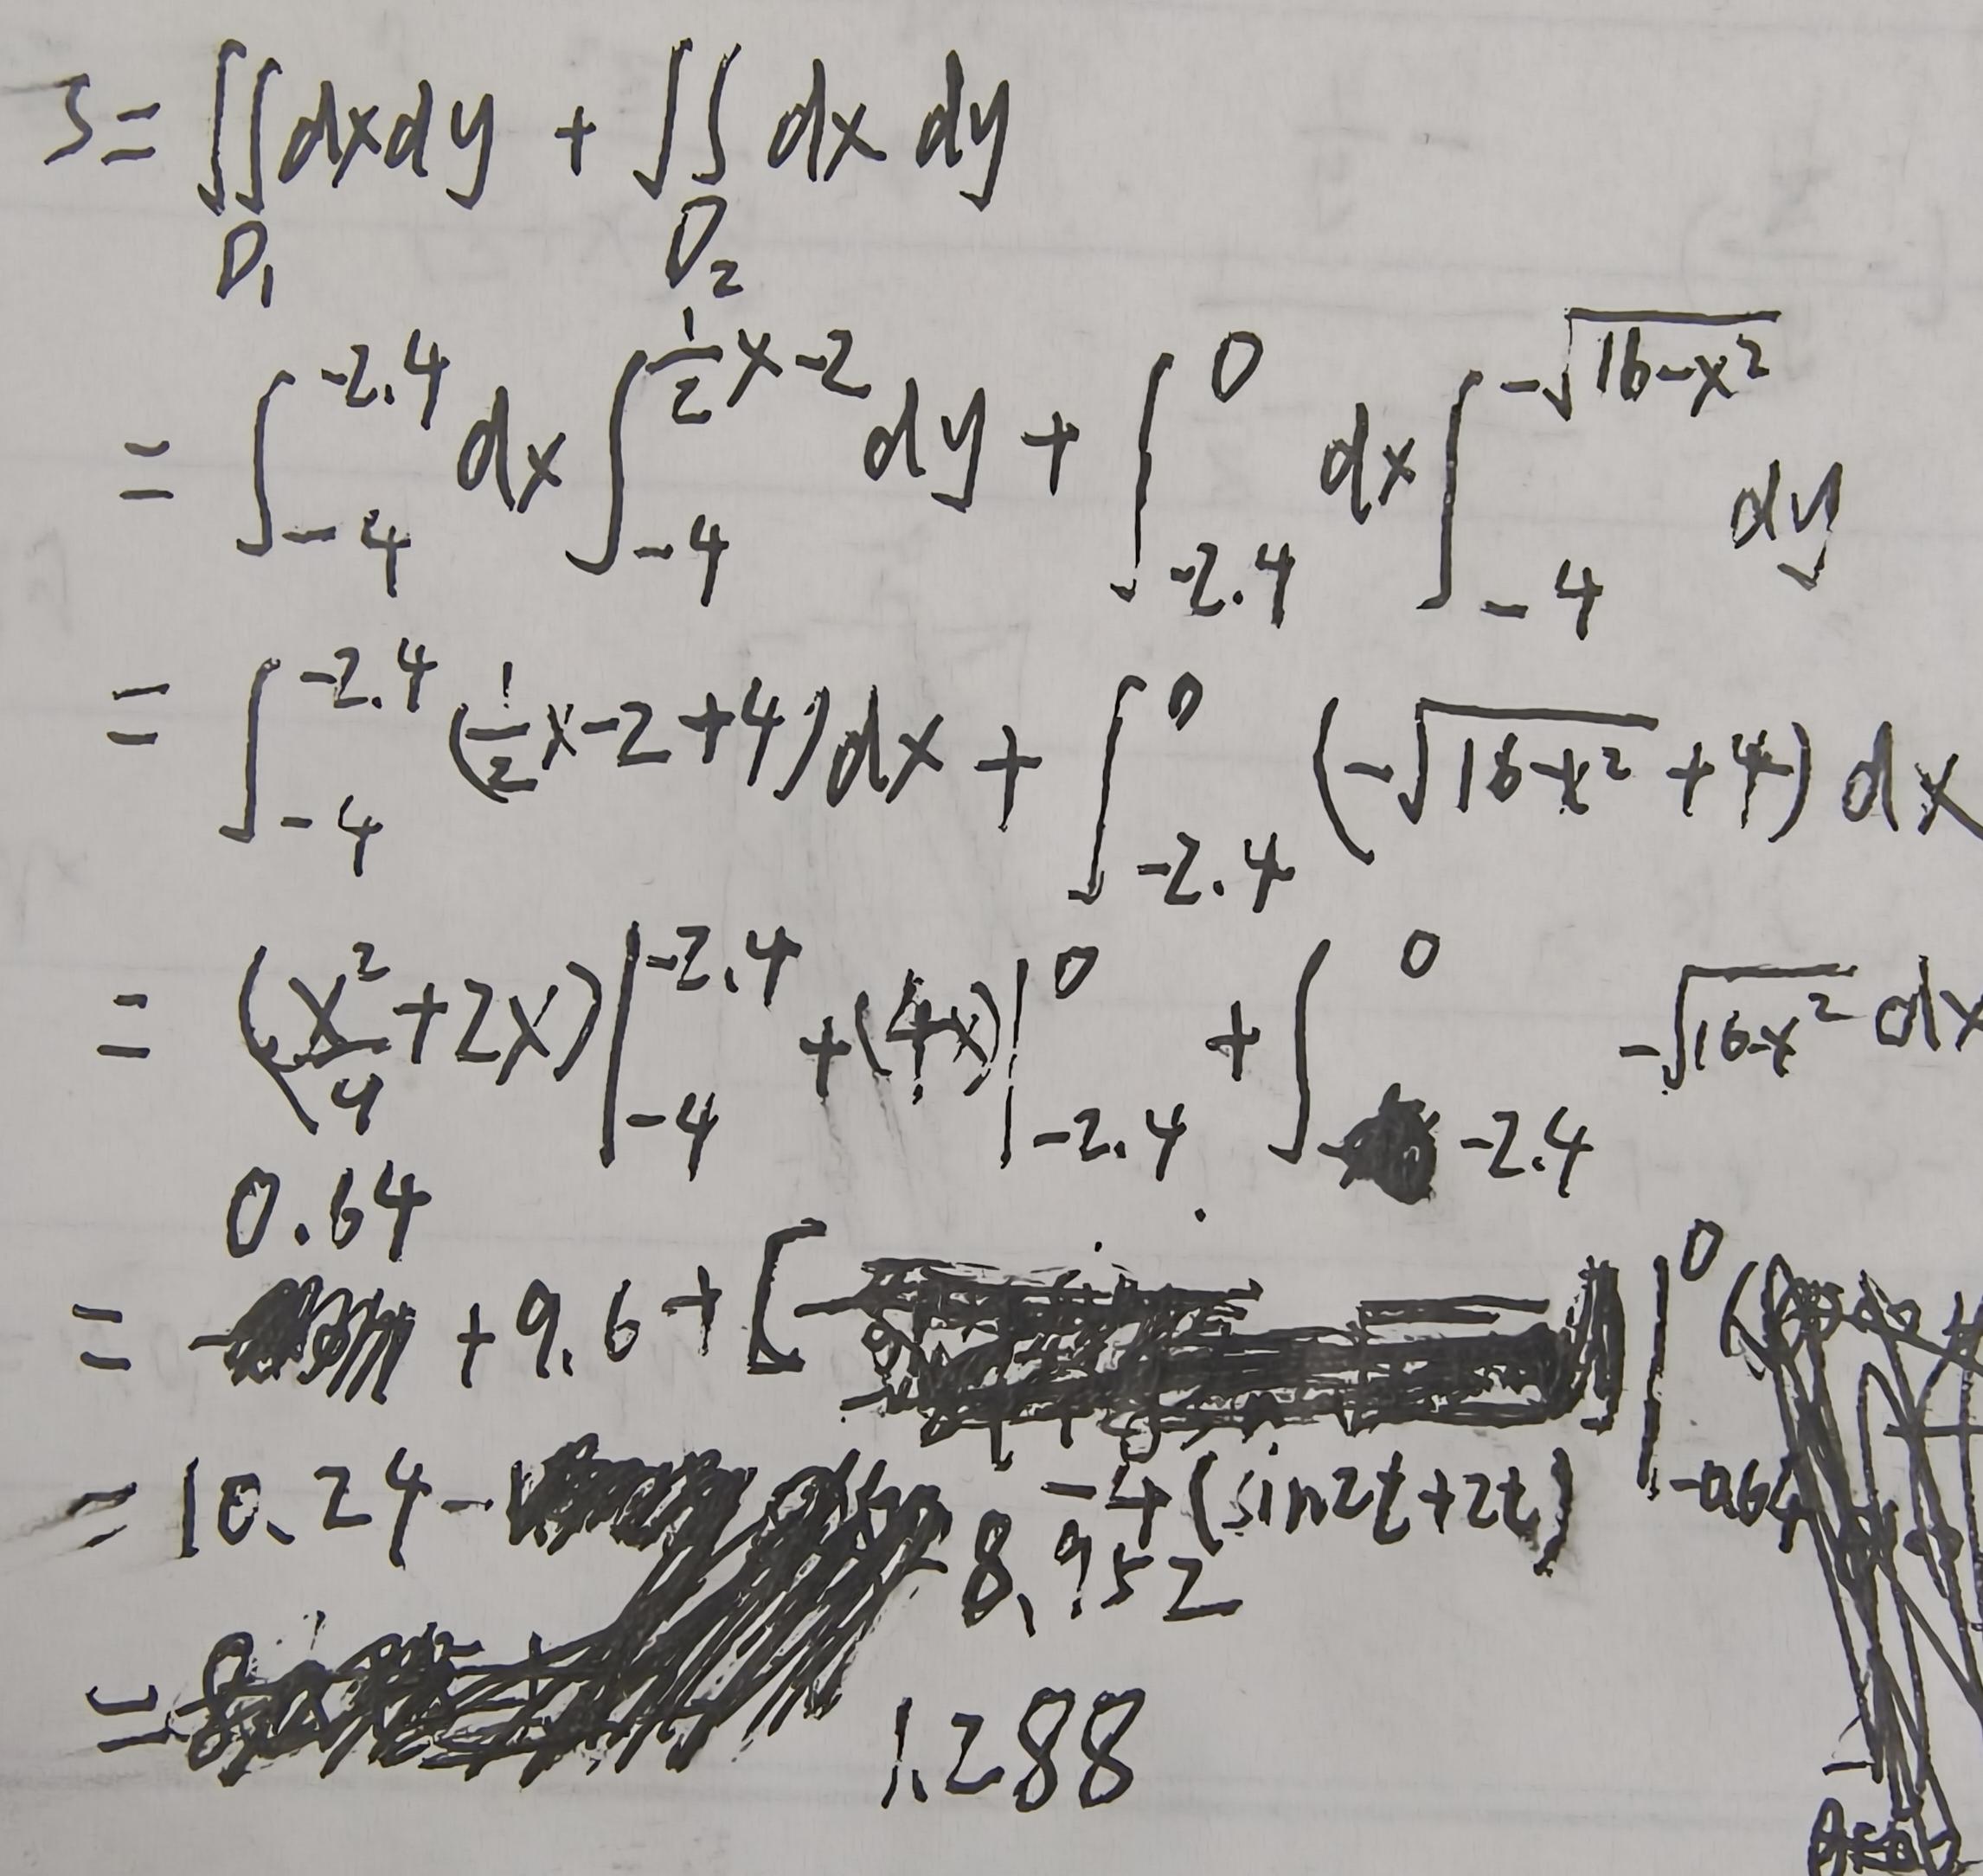 S = ∬_{D₁} dxdy + ∬_{D₂} dx dy
= ∫_{-4}^{-2.4} dx ∫_{-4}^{½x-2} dy + ∫_{-2.4}^{0} dx ∫_{-4}^{-√(16-x²)} dy
= ∫_{-4}^{-2.4} (½x-2+4) dx + ∫_{-2.4}^{0} (-√(16-x²) +4) dx
= (x²/4 + 2x) |_{-4}^{-2.4} + (4x) |_{-2.4}^{0} + ∫_{-2.4}^{0} -√(16-x²) dx
= 0.64 + 9.6 + [ -4(sin2t+2t) |_{-0.64}^{0}
= 10.24 - 8.952
= 1.288